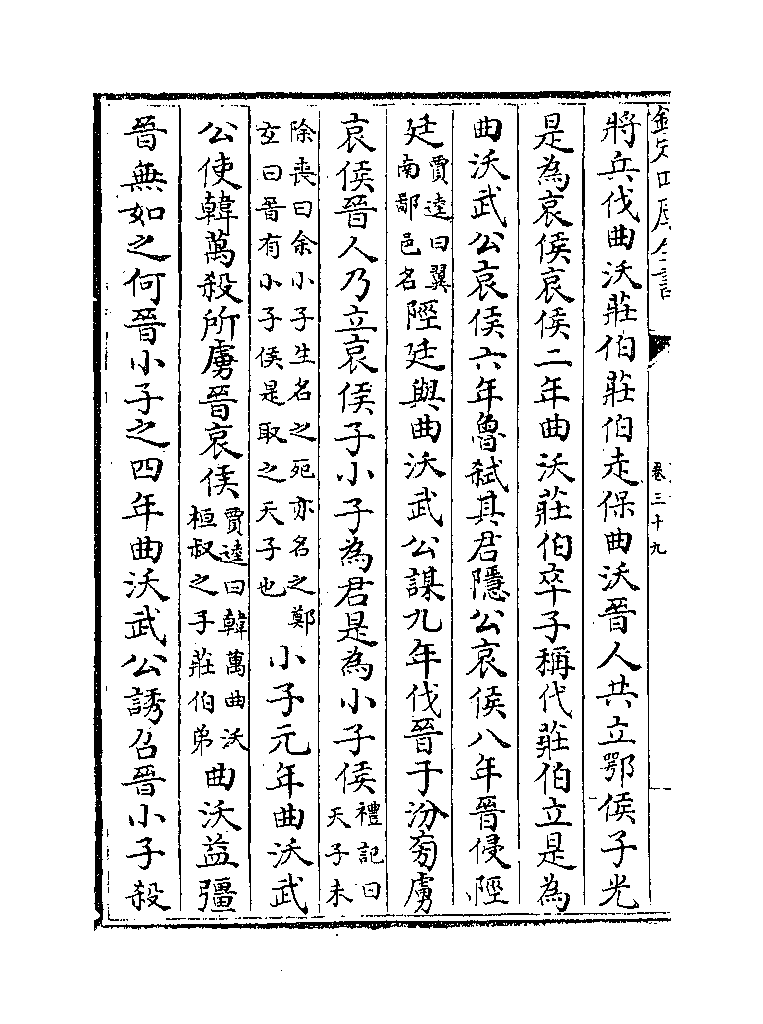 欽定四庫全書
卷三十九
將兵伐曲沃莊伯莊伯走保曲沃晉人共立鄂侯子光
是為哀侯哀侯二年曲沃莊伯卒子稱代莊伯立是為
曲沃武公哀侯六年魯弑其君隱公哀侯八年晉侵陘
廷賈逵曰翼南鄙邑名陘廷與曲沃武公謀九年伐晉于汾旁虜
哀侯晉人乃立哀侯子小子為君是為小子侯禮記曰天子未
除喪曰余小子生名之死亦名之鄭玄曰晉有小子侯是取之天子也小子元年曲沃武
公使韓萬殺所虜晉哀侯賈逵曰韓萬曲沃桓叔之子莊伯弟曲沃益彊
晉無如之何晉小子之四年曲沃武公誘召晉小子殺